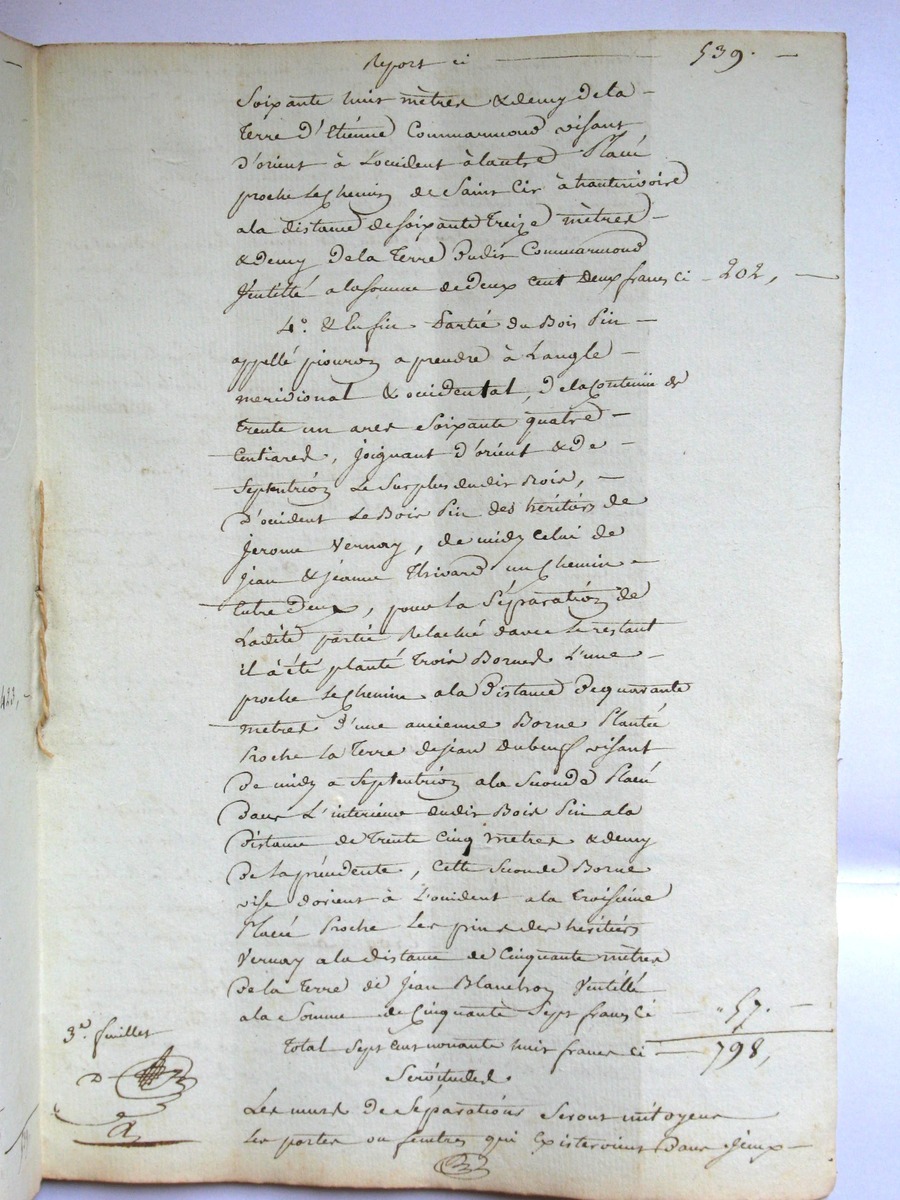 Report ci — 539. —
Soixante huit mètres & demy de la —
terre d'Etiénne Commarmond visant
d'orient à L'occident à lautre Placé
proche le Chemin de Saint Cir à hauterivoire
a la distance de soixante Treize mètres —
& demy de la Terre dudit Commarmond
Ventillé a la somme de deux cent deux francs ci — 202, —
4.° & Enfin Partié du Bois Pin —
appellé piouron a prendre à L'angle —
meridional & occidental, de la Contenüe de
Trente un ares Soixante quatre —
Centiares, joignant d'orient & de —
Septentrion le Surplus dudit Bois, —
d'occident Le Bois Pin des héritiers de
Jerome Vernay, de midy celui de
Jean & jeanne Thivard un Chemin —
Entre deux, pour la Séparation de
Ladite partie Relachée davec le restant
il a été planté Trois Bornes L'une —
proche le Chemin a la Distance de quarante
metres d'une ancienne Borne Plantée
Proche la Terre de jean dubeuf visant
de midy a Septentrion a la Seconde Placé
dans L'interieur dudit Bois Pin a la
Distance de Trente Cinq metres & demy
de la précédente, Cette Seconde Borne
vise d'orient à L'occident a la Troisième
Placé Proche Les pins des héritiers
Vernay a la distance de Cinquante mètres
de la Terre de Jean Blanchon Ventillé
a la Somme de Cinquante Sept francs Ci — 57. —
Total Sept cent nonante huit francs ci — 798,
3.e feuillet
Servitudes.
Les murs de Séparations Seront mitoyens
Les portes ou fenêtres qui Existeroient Dans Jceux —
423,